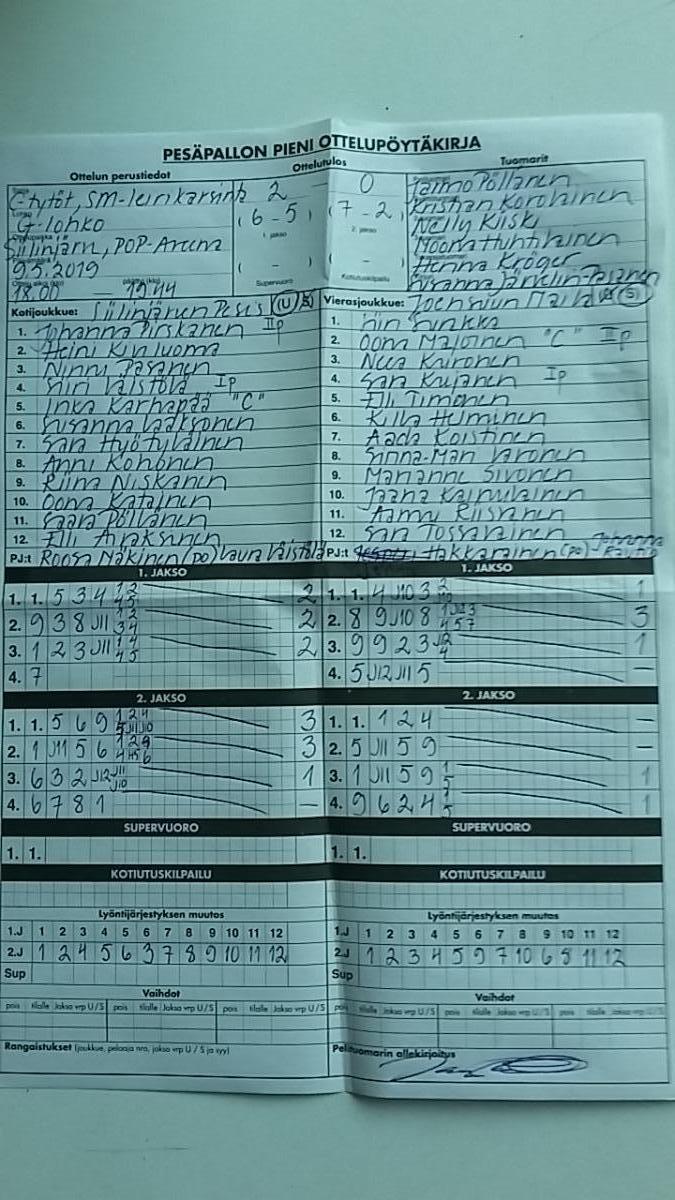 PESÄPALLON PIENI OTTELUPÖYTÄKIRJA
Ottelun perustiedot
Ottelutulos
Tuomarit
C-tytöt, SM-leirikarsinta 2 - 0 Jarmo Pöllänen
G-lohko (6-5) (7-2) Kristian Korohinen
1. jakso 2. jakso Nelly Kiiski
Siilinjärvi, POP-Areena Noora Huhtilainen
9.5.2019 ( - ) ( - ) Henna Kröger
18.00 — 19.44 Supervuoro Kotiutuskilpailu Susanna
Kotijoukkue: Siilinjärven Pesis (U) S
Vierasjoukkue: Joensuun Maila U (S)
1. Johanna Pirskanen IIp
2. Heini Kinluoma
3. Ninni Pasanen
4. Siiri Väistölä Ip
5. Inka Karhapää "C"
6. Susanna Laaksonen
7. Sara Hyötyläinen
8. Anni Kohonen
9. Riina Niskanen
10. Oona Katainen
11. Saara Pöllänen
12. Elli Airaksinen
PJ:t Roosa Näkinen (po) Laura Väistölä
1. Iiri
2. Oona Majoinen "C" IIp
3. Neea Kaironen
4. Sara Kujanen Ip
5. Elli Timonen
6. Killa Helminen
7. Aada Koistinen
8. Sinna-Mari Varonen
9. Marianne Sivonen
10. Jaana Kainulainen
11. Aamu Riisanen
12. Sari Tossavainen
PJ:t Hakkarainen (po) Johanna
1. JAKSO
1. 1. 5 3 4 1 2 4 5 2
2. 9 3 8 J11 1 2 3 4 2
3. 1 2 3 J11 1 4 4 5 2
4. 7
1. JAKSO
1. 1. 4 J10 3 1
2. 8 9 J10 8 3
3. 9 9 2 3 1
4. 5 J12 J11 5 —
2. JAKSO
1. 1. 5 6 9 1 2 4 5 J11 J10 3
2. 1 J11 5 6 1 2 9 3
3. 6 3 2 J12 J11 J10 1
4. 6 7 8 1 —
2. JAKSO
1. 1. 1 2 4 —
2. 5 J11 5 9 —
3. 1 J11 5 9 1 5 1
4. 9 6 2 4 1 5 1
SUPERVUORO
1. 1.
SUPERVUORO
1. 1.
KOTIUTUSKILPAILU
KOTIUTUSKILPAILU
Lyöntijärjestyksen muutos
1.J 1 2 3 4 5 6 7 8 9 10 11 12
2.J 1 2 4 5 6 3 7 8 9 10 11 12
Sup
Lyöntijärjestyksen muutos
1.J 1 2 3 4 5 6 7 8 9 10 11 12
2.J 1 2 3 4 5 9 7 10 6 8 11 12
Sup
Vaihdot
pois tilalle Jakso vrp U/S pois tilalle Jakso vrp U/S pois tilalle Jakso vrp U/S
Vaihdot
pois tilalle Jakso vrp U/S pois tilalle Jakso vrp U/S pois tilalle Jakso vrp U/S
Rangaistukset (joukkue, pelaaja nro, jakso vrp U / S ja syy)
Pelituomarin allekirjoitus